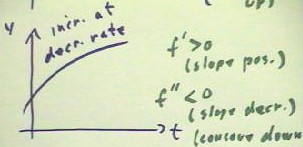 up)
y
incr. at
decr. rate
f' > 0
(slope pos.)
f'' < 0
(slope decr.)
(concave down
t